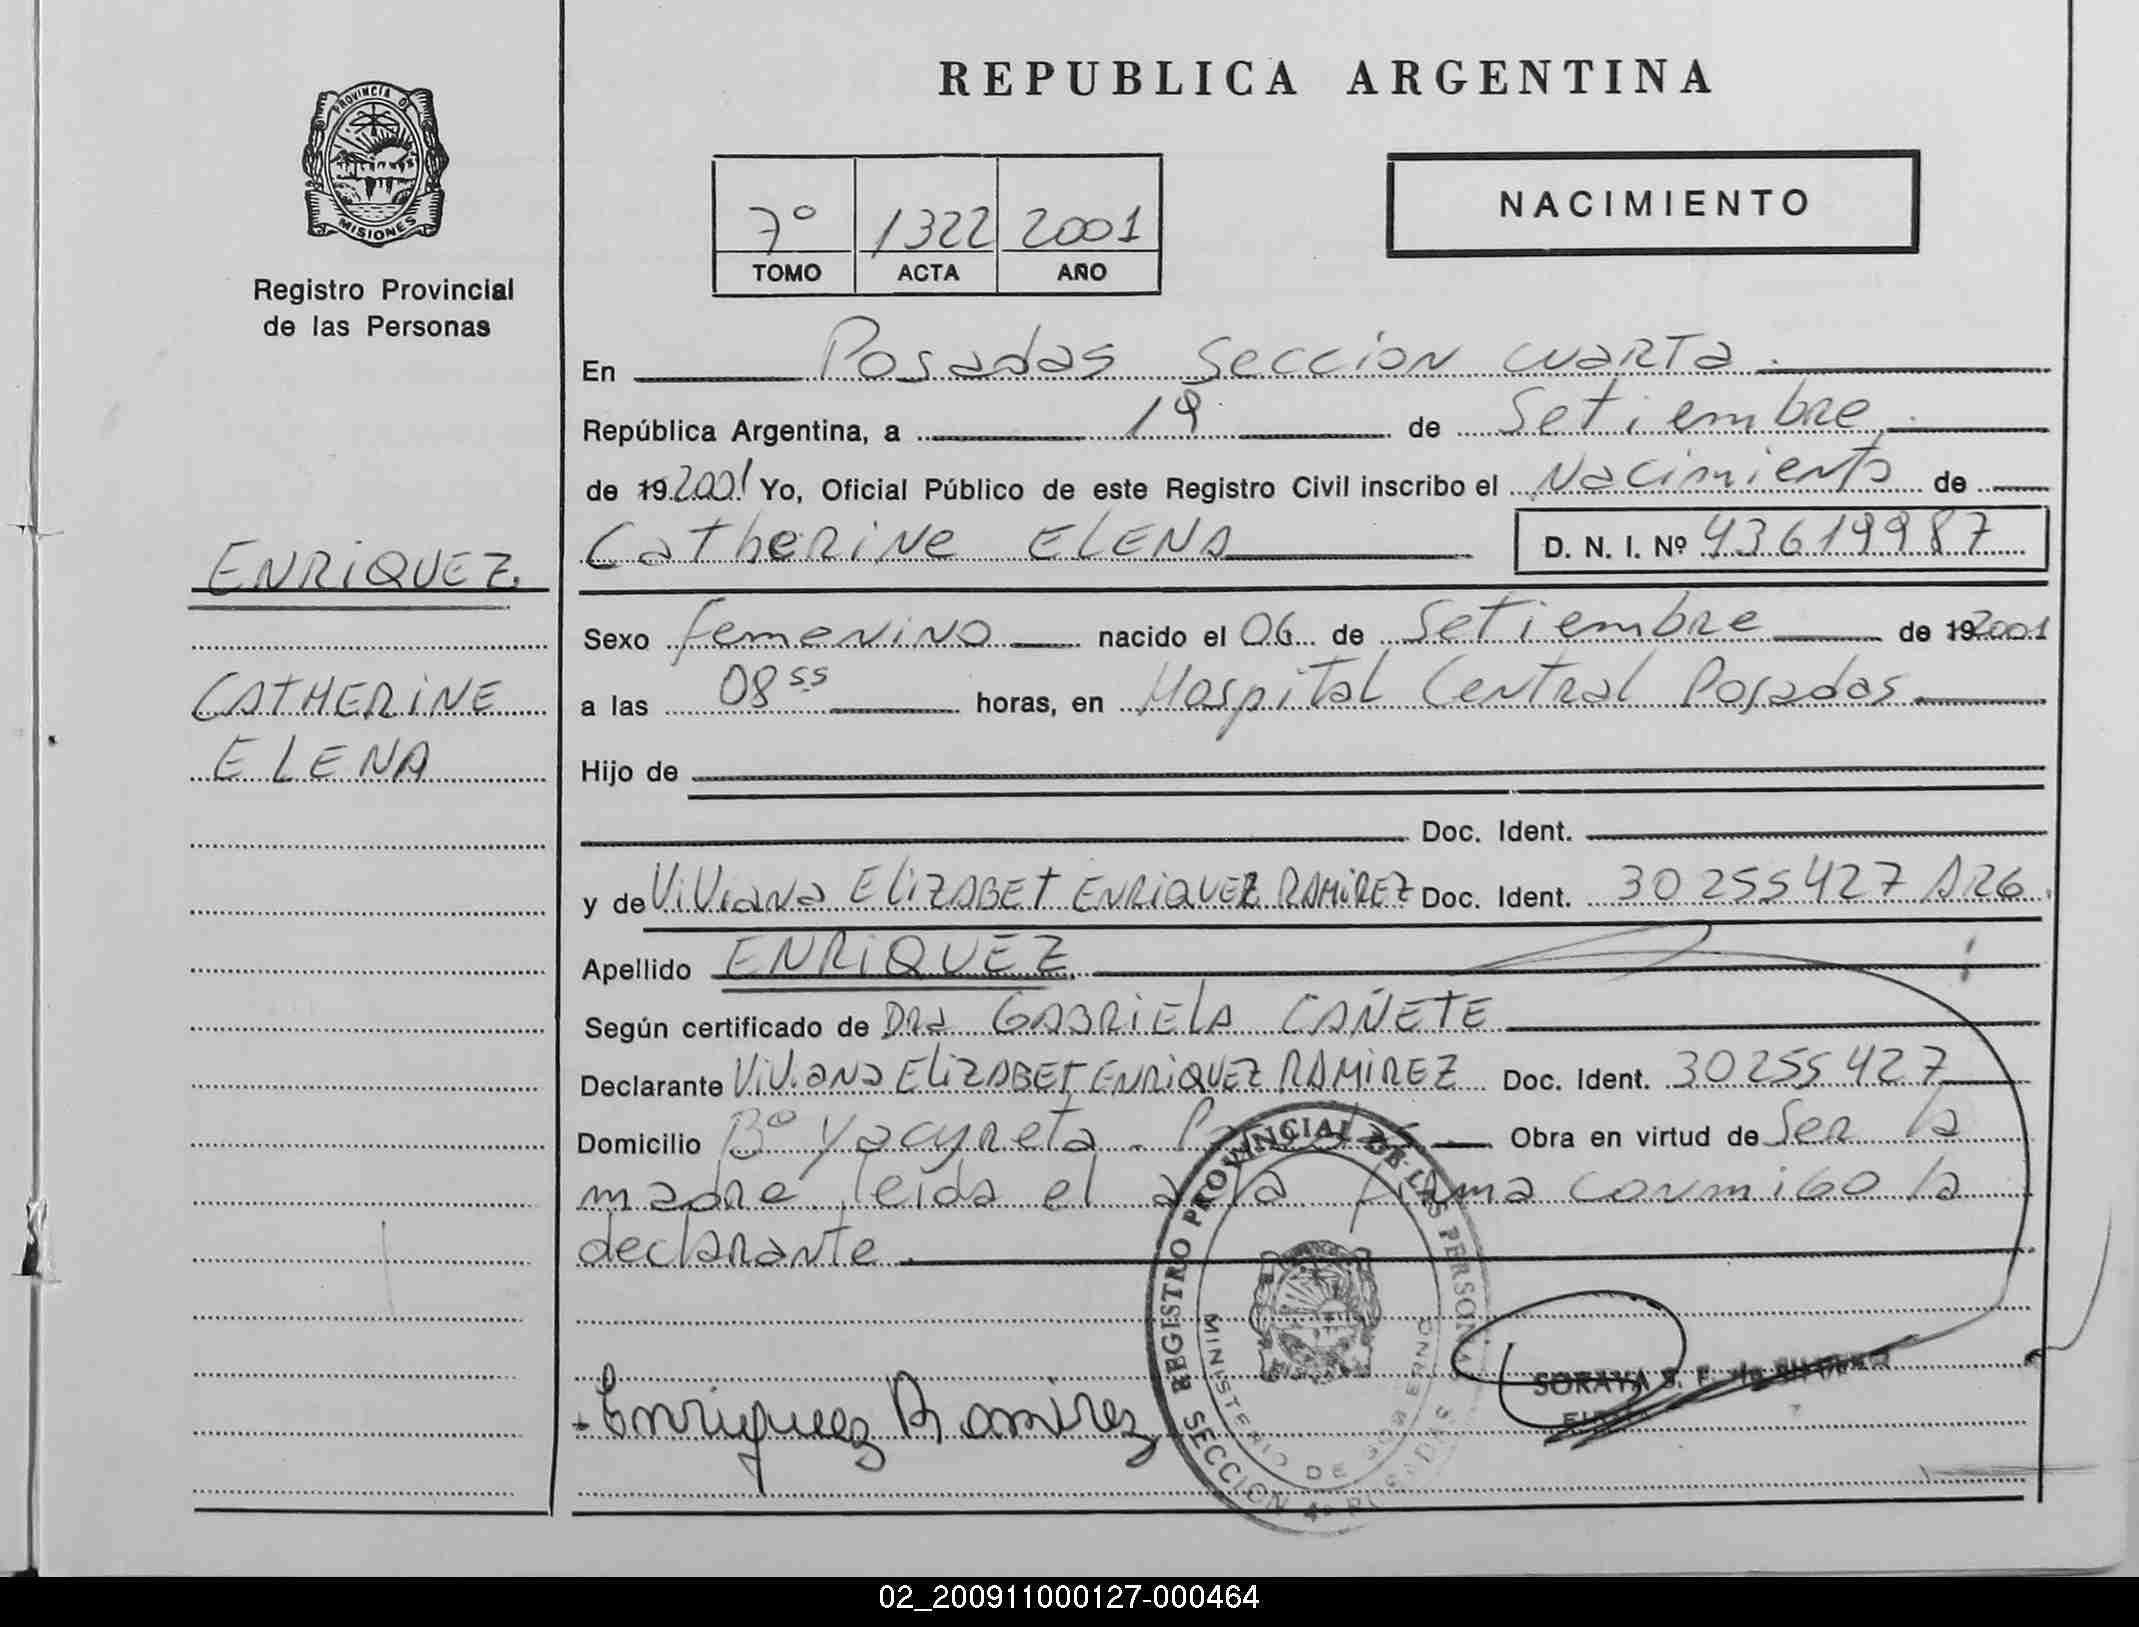 REPUBLICA ARGENTINA
PROVINCIA D
MISIONES
Registro Provincial
de las Personas
7º 1322 2001
TOMO ACTA AÑO
NACIMIENTO
En Posadas Seccion cuarta.
República Argentina, a 19 de Setiembre
de 19 2001 Yo, Oficial Público de este Registro Civil inscribo el Nacimiento de
Catherine ELENA D. N. I. Nº 43619987
ENRIQUEZ.
CATHERINE
ELENA
Sexo femenino nacido el 06 de Setiembre de 19 2001
a las 08 55 horas, en Hospital Central Posadas
Hijo de
Doc. Ident.
y de Viviana ELIZABET ENRIQUEZ RAMIREZ Doc. Ident. 30255427 ARG.
Apellido ENRIQUEZ.
Según certificado de Dra GABRIELA CAÑETE
Declarante Viviana ELIZABET ENRIQUEZ RAMIREZ Doc. Ident. 30255427
Domicilio Bº Yacyreta - Obra en virtud de Ser la
madre leida el acta firma conmigo la
declarante.
REGISTRO PROVINCIAL DE LAS PERSONAS
MINISTERIO DE GOBIERNO
SECCION 4a POSADAS
Enriquez Ramirez
SORAYA S. F. de
02_200911000127-000464